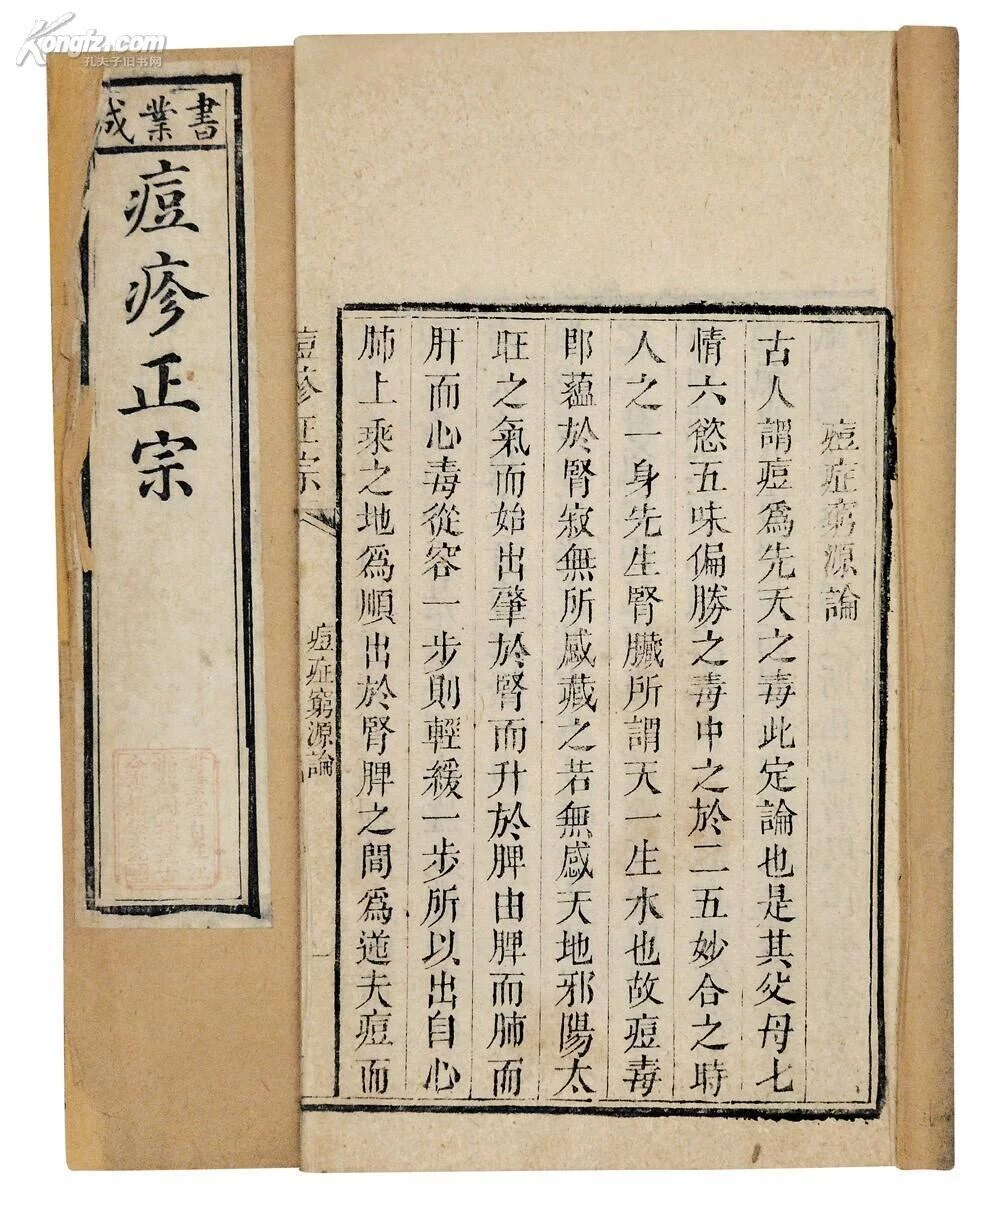 Kongfz.com
孔夫子旧书网
書業成
痘疹正宗
痘症窮源論
古人謂痘爲先天之毒此定論也是其父母七
情六慾五味偏勝之毒中之於二五妙合之時
人之一身先生腎臟所謂天一生水也故痘毒
卽蘊於腎寂無所感藏之若無感天地邪陽太
旺之氣而始出肇於腎而升於脾由脾而肺而
肝而心毒從容一步則輕緩一步所以出自心
肺上乘之地爲順出於腎脾之間爲逆夫痘而
痘疹正宗
痘症窮源論
一